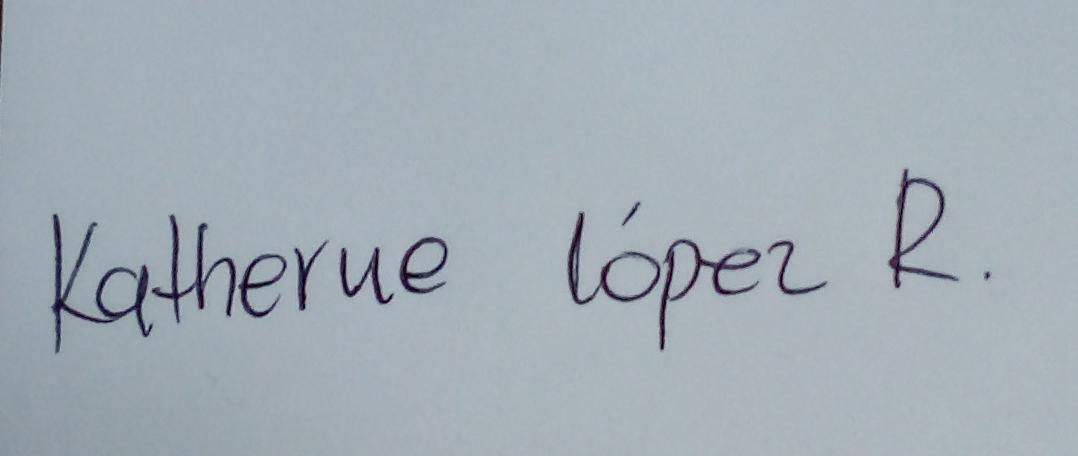 Katherue López R.